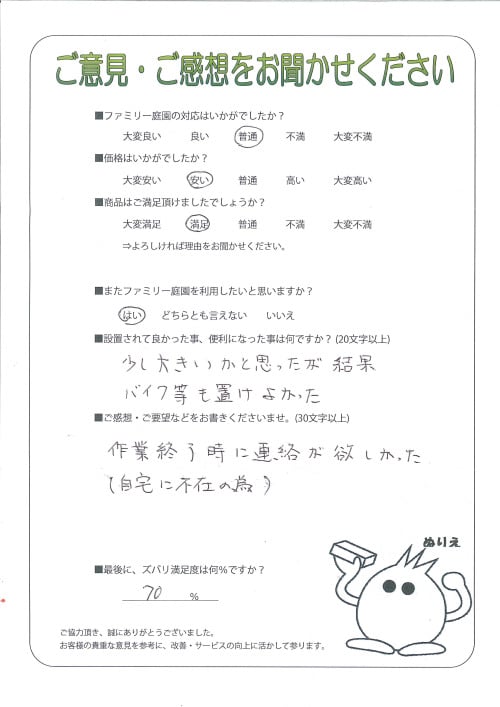 ご意見・ご感想をお聞かせください
■ファミリー庭園の対応はいかがでしたか?
大変良い 良い 普通 不満 大変不満
■価格はいかがでしたか?
大変安い 安い 普通 高い 大変高い
■商品はご満足頂けましたでしょうか?
大変満足 満足 普通 不満 大変不満
⇒よろしければ理由をお聞かせください。
■またファミリー庭園を利用したいと思いますか?
はい どちらとも言えない いいえ
■設置されて良かった事、便利になった事は何ですか? (20文字以上)
少し大きいかと思ったが結果
バイク等も置けよかった
■ご感想・ご要望などをお書きくださいませ。(30文字以上)
作業終う時に連絡が欲しかった
(自宅に不在の為)
ぬりえ
■最後に、ズバリ満足度は何%ですか?
70 %
ご協力頂き、誠にありがとうございました。
お客様の貴重な意見を参考に、改善・サービスの向上に活かして参ります。